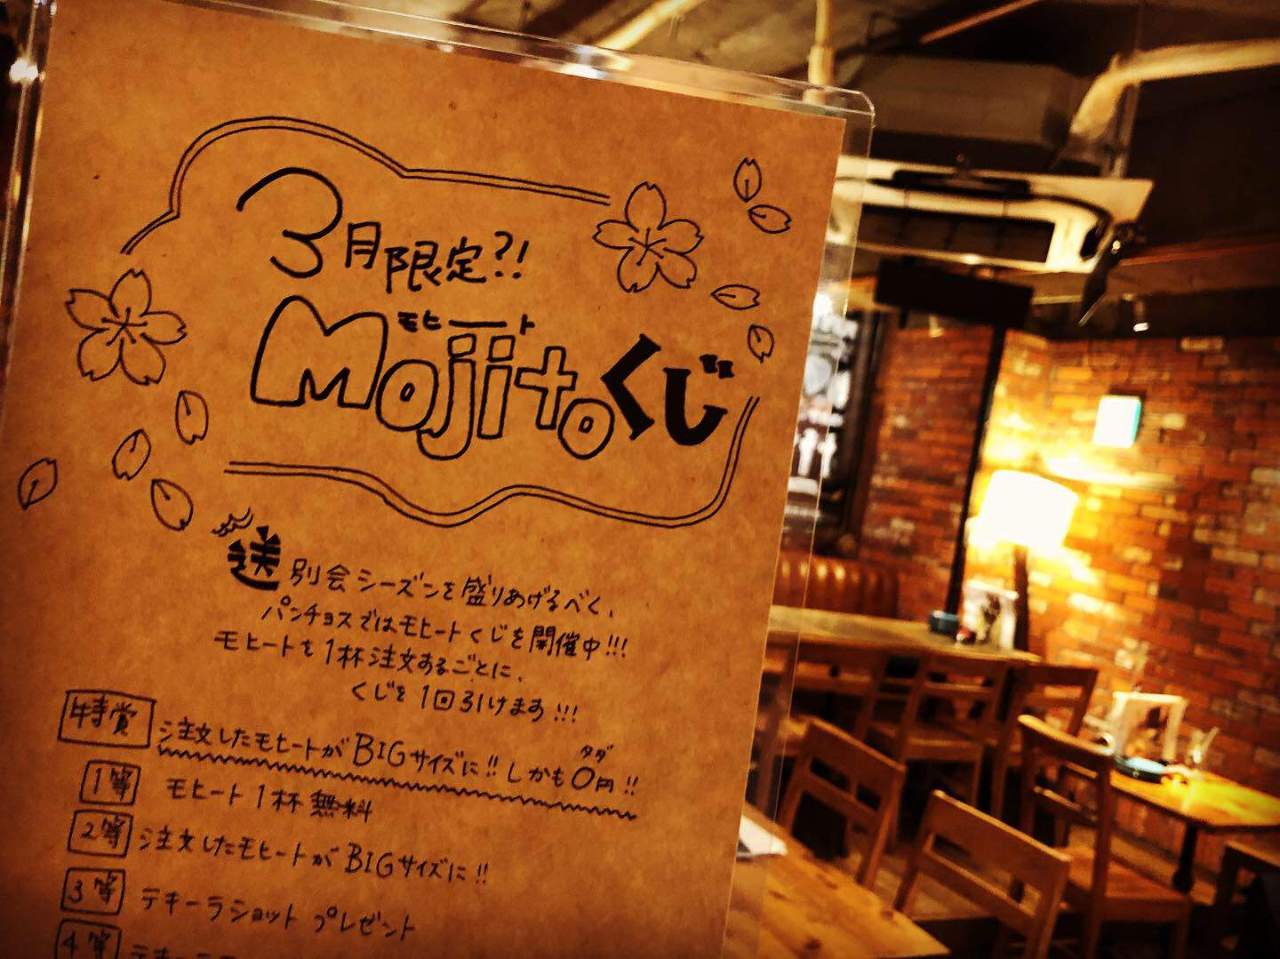 3月限定?!
モヒート
Mojitoくじ
送別会シーズンを盛りあげるべく、
パンチョスではモヒートくじを開催中!!!
モヒートを1杯注文するごとに、
くじを1回引けます!!!
特賞 注文したモヒートがBIGサイズに!! しかも0円!!
タダ
1等 モヒート1杯無料
2等 注文したモヒートがBIGサイズに!!
3等 テキーラショット プレゼント
4等